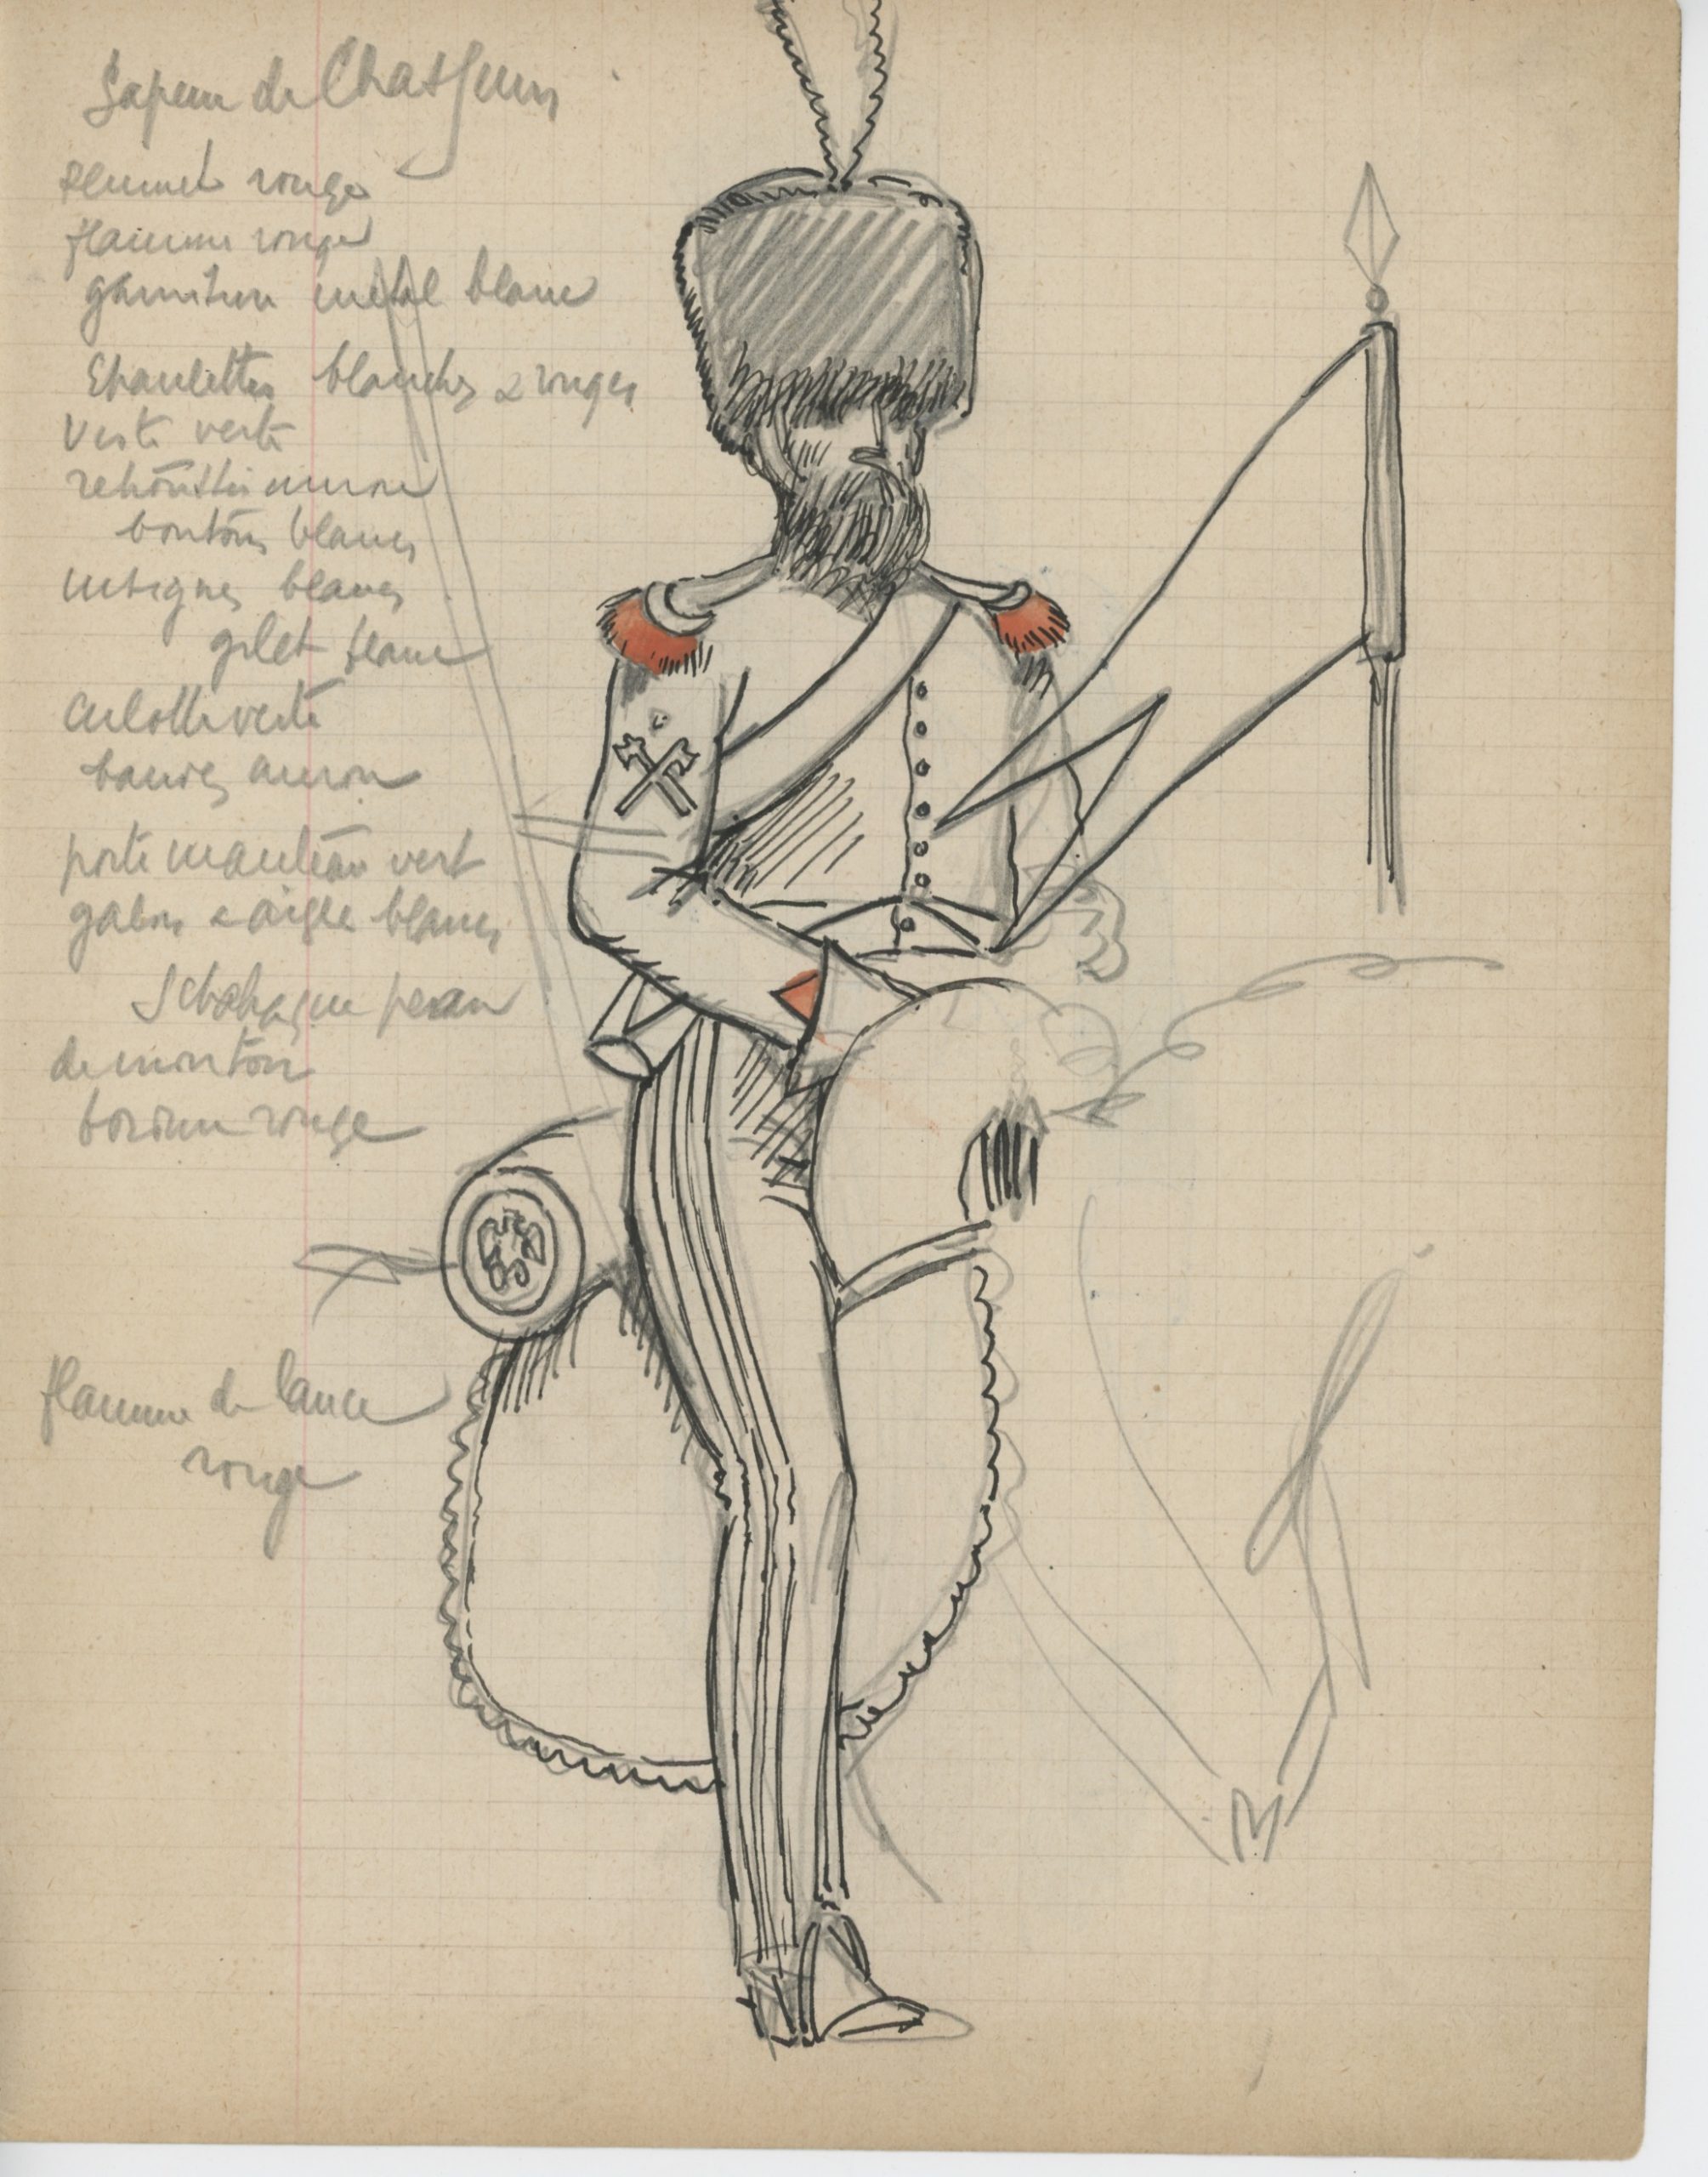 Sapeur de Chasseurs
plumet rouge
flamme rouge
garniture métal blanc
Epaulettes blanches & rouges
Veste verte
retroussis aurore
boutons blancs
insignes blancs
gilet blanc
culotte verte
bandes aurore
porte manteau vert
galon & aigle blancs
Schabraque peau
de mouton
bordure rouge
flamme de lance
rouge